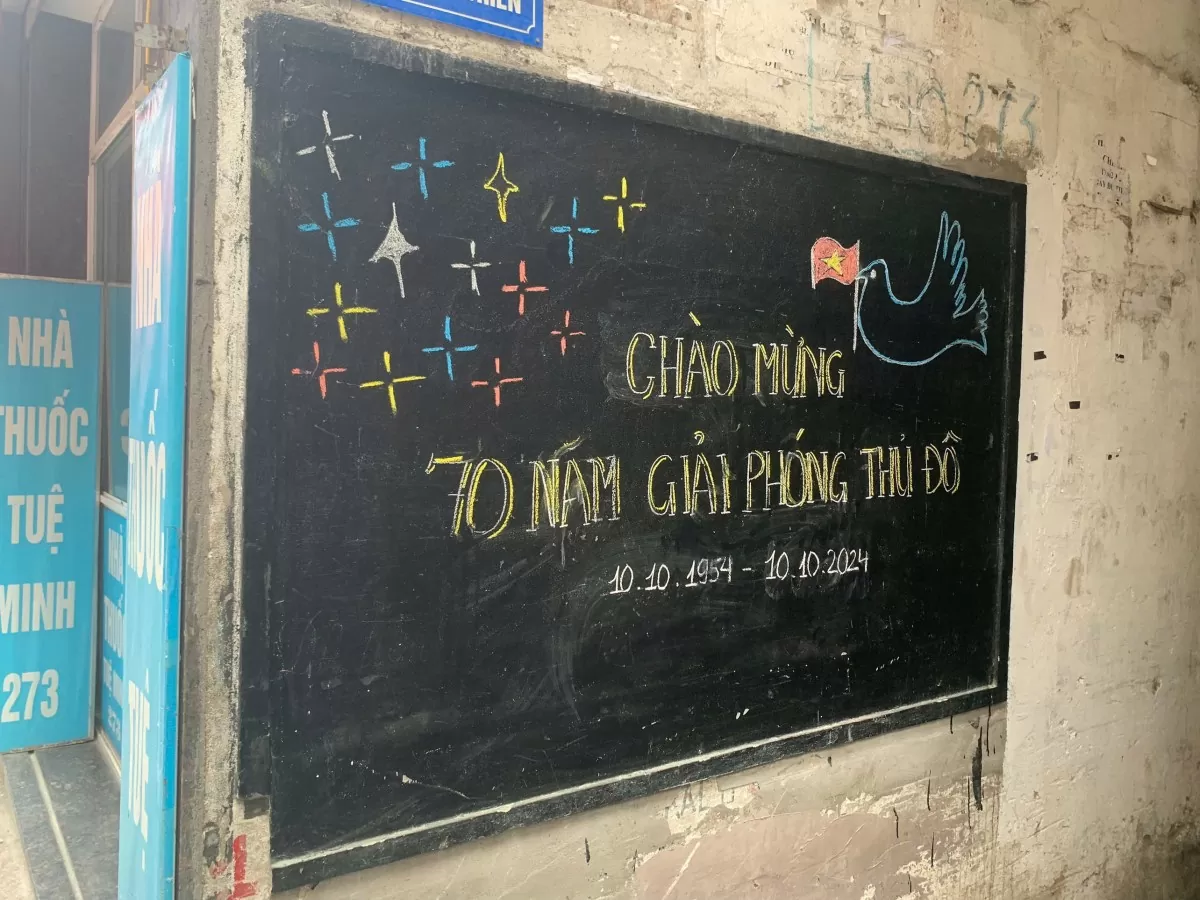 CHÀO MỪNG
70 NĂM GIẢI PHÓNG THỦ ĐÔ
10.10.1954 - 10.10.2024
NHÀ
THUỐC
TUỆ
MINH
273
NHÀ
THUỐC
TUỆ
NHÀ
THUỐC
273